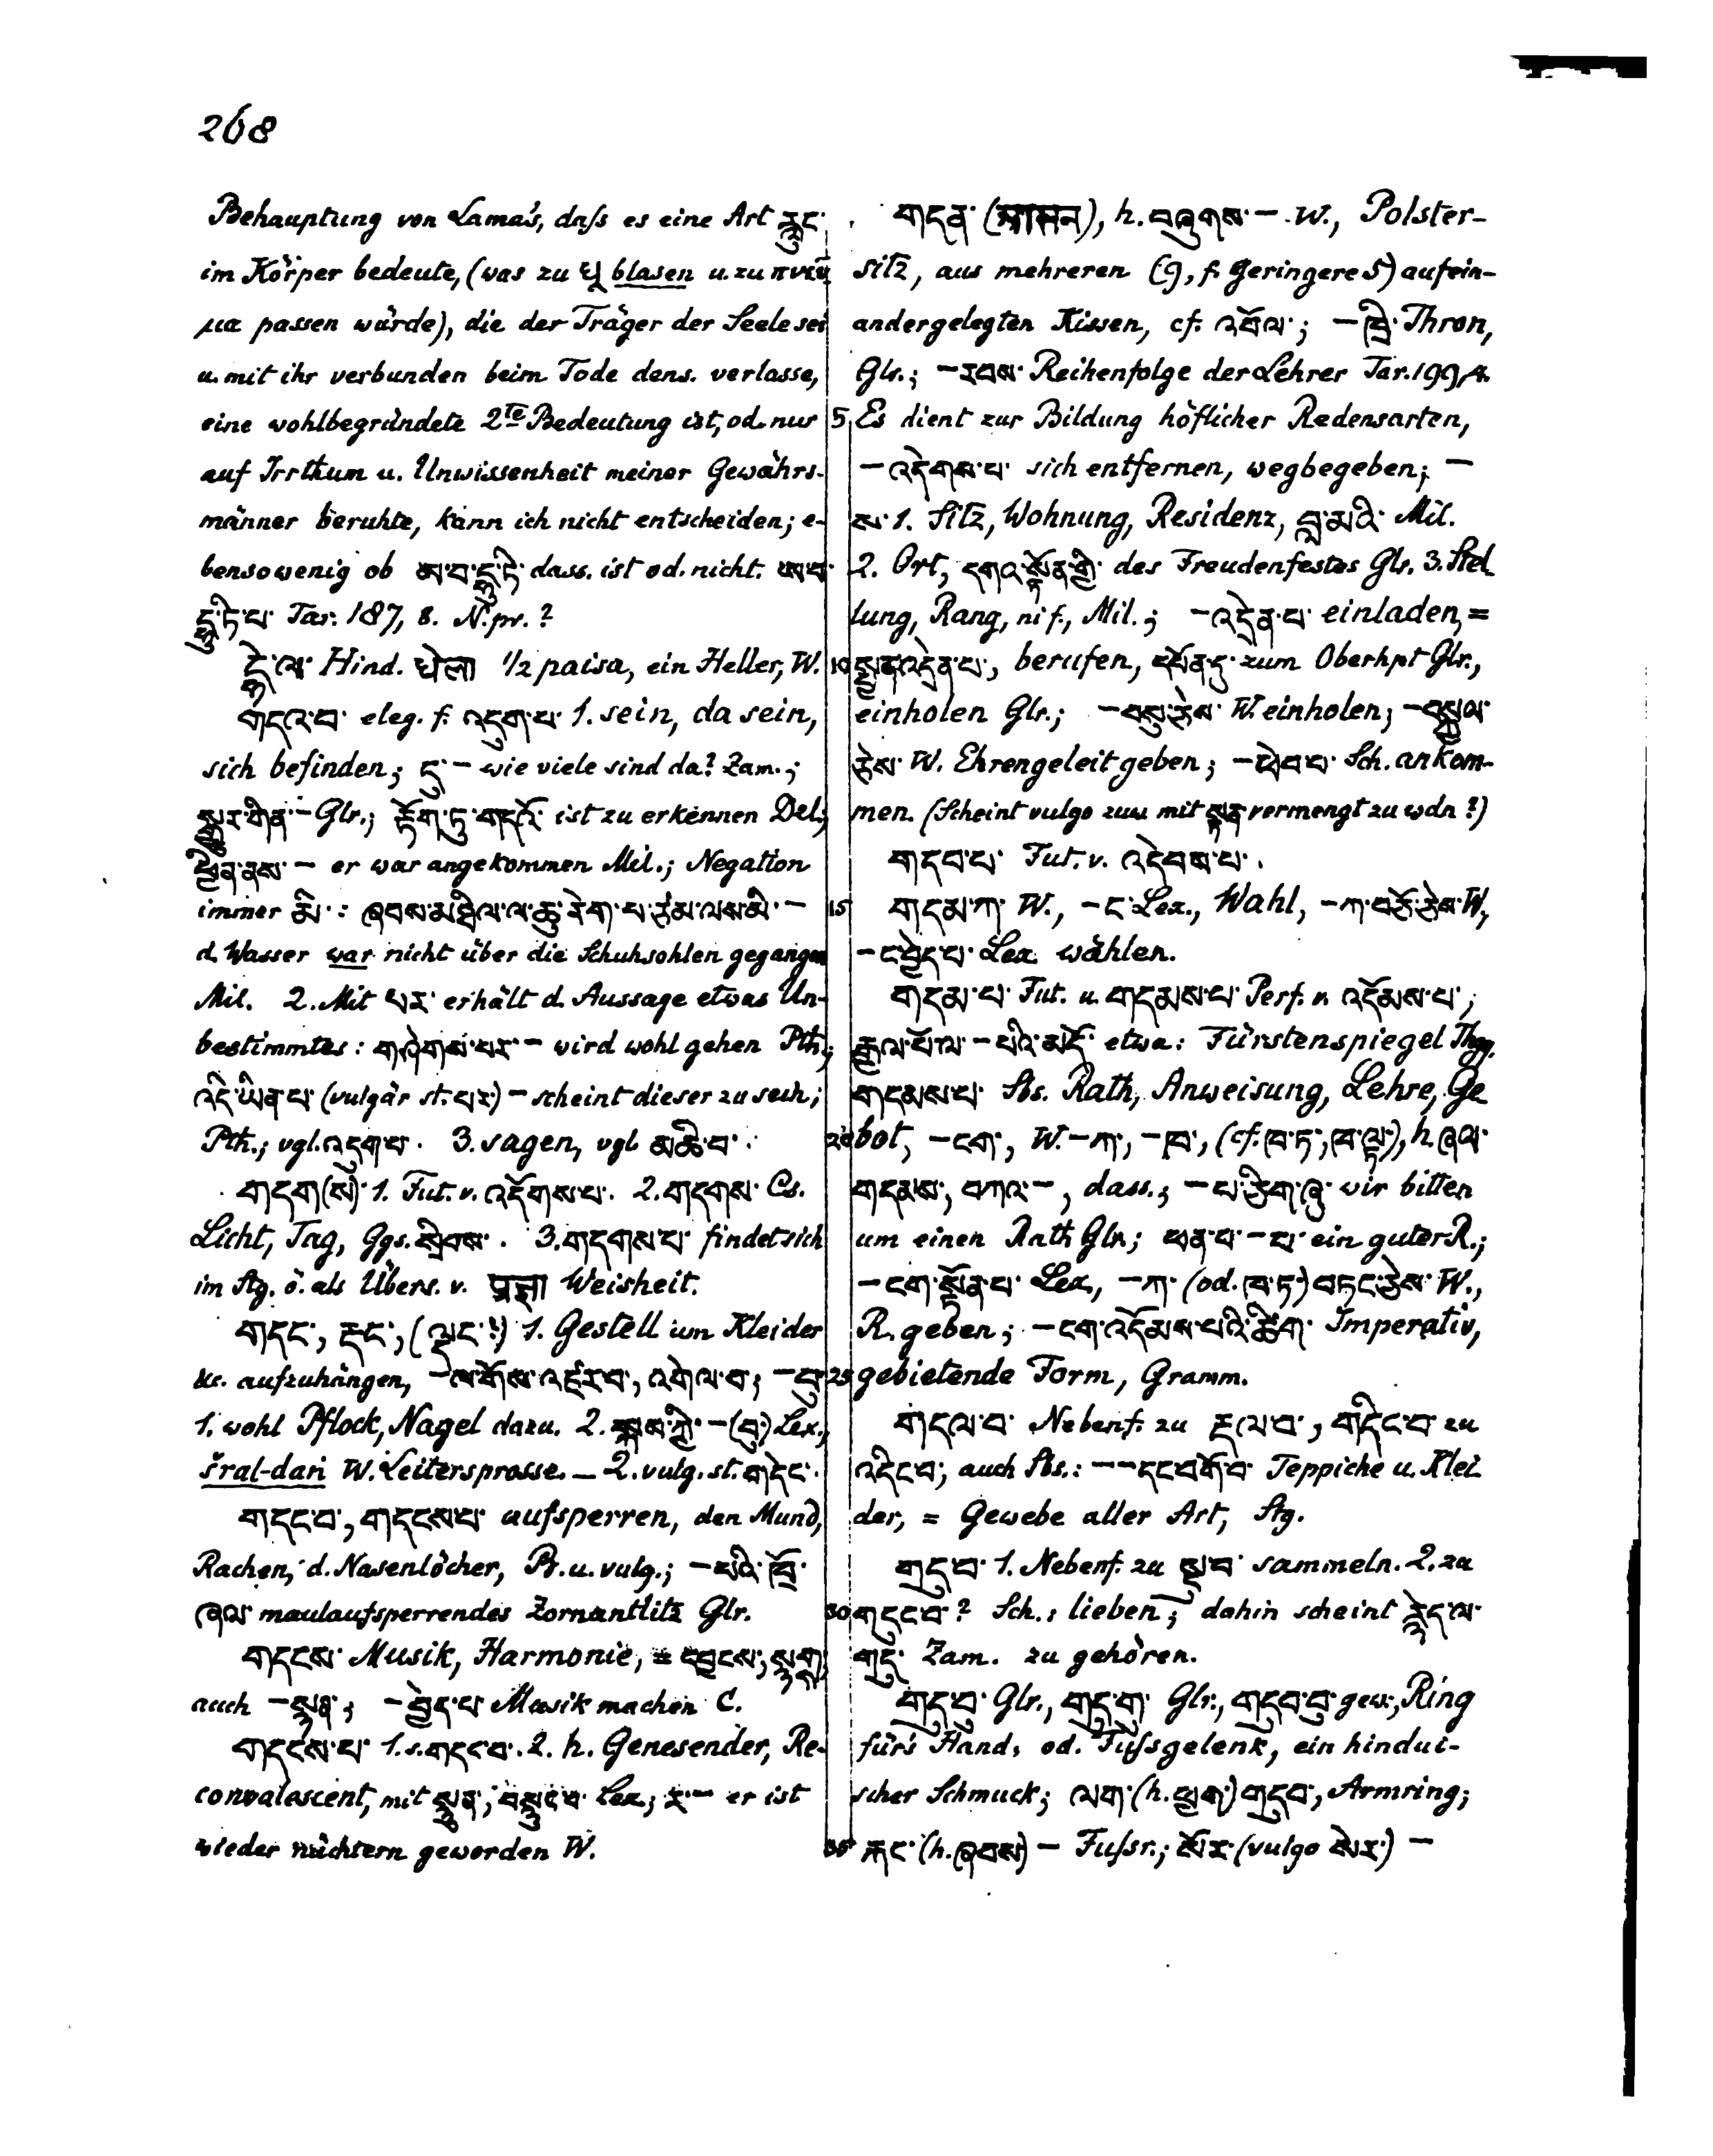 268
Behauptung von Lama's, daſs es eine Art རླུང་
im Körper bedeute, (was zu धू blasen u. zu πνεῦ
μα passen würde), die der Träger der Seele sei
u. mit ihr verbunden beim Tode dens. verlasse,
eine wohlbegründete 2te Bedeutung ist, od. nur
auf Irrthum u. Unwissenheit meiner Gewährs-
männer beruhte, kann ich nicht entscheiden; e-
bensowenig ob dass. ist od. nicht.
Tar. 187, 8. N.pr.?
Hind. धेला 1/2 paisa, ein Heller, W.
གདའ་བ་ eleg. f. འདུག་པ་ 1. sein, da sein,
sich befinden; དུ་ – wie viele sind da? Zam.;
– Glr.; རྟོག་ཏུ་གདའོ་ ist zu erkennen Del;
ཕྱིན་ནས་ – er war angekommen Mil.; Negation
immer མི་: ཞབས་མཐིལ་ལ་ཆུ་རེག་པ་ཙམ་ལས་མི་ –
d. Wasser war nicht über die Schuhsohlen gegangen
Mil. 2. Mit པར་ erhält d. Aussage etwas Un-
bestimmtes: གཤེགས་པར་ – wird wohl gehen Pth;
འདི་ཡིན་པ་ (vulgär st. པར་) – scheint dieser zu sein;
Pth.; vgl. འདུག་པ་. 3. sagen, vgl མཆི་བ་.
གདག(ས)་ 1. Fut. v. འདོགས་པ་. 2. གདགས་ Cs.
Licht, Tag, Ggs. སྲིབས་. 3. གདགས་པ་ findet sich
im Stg. ö. als Übers. v. प्रज्ञा Weisheit.
གདང་, རྡང་, (ལྡང་?) 1. Gestell um Kleider
&c. aufzuhängen, –ལ་གོས་འཛར་བ་, འགེལ་བ་; –བུ་
1. wohl Pflock, Nagel dazu. 2. སྐས་ཀྱི་ –(བུ་) Lex.,
šral-daṅ W. Leitersprosse. – 2. vulg. st. གདེང་.
གདང་བ་, གདངས་པ་ aufsperren, den Mund,
Rachen, d. Nasenlöcher, Pr. u. vulg.; –པའི་ཁྲོ་
ཞལ་ maulaufsperrendes Zornantlitz Glr.
གདངས་ Musik, Harmonie, = དབྱངས་,
auch –སྙན་; –བྱེད་པ་ Musik machen C.
གདངས་པ་ 1. s. གདང་བ་. 2. h. Genesender, Re-
convalescent, mit སྙུན་, Lex; ར་– er ist
wieder nüchtern geworden W.
གདན་ (आसन), h. བཞུགས་ – W., Polster-
sitz, aus mehreren (9, f. Geringere 5) aufein-
andergelegten Kissen, cf. འབོལ་; –ཁྲི་ Thron,
Glr.; –རབས་ Reihenfolge der Lehrer Tar. 199, 4.
5 Es dient zur Bildung höflicher Redensarten,
–འདེགས་པ་ sich entfernen, wegbegeben; –
ས་ 1. Sitz, Wohnung, Residenz, བླ་མའི་ Mil.
2. Ort, དགའ་སྟོན་གྱི་ des Freudenfestes Glr. 3. Stel
lung, Rang, ni f., Mil.; –འདྲེན་པ་ einladen, =
10 སྤྱན་འདྲེན་པ་, berufen, དཔོན་དུ་ zum Oberhpt Glr.,
einholen Glr.; –བསུ་ཅེས་ W. einholen; –བསྐྱལ་
ཅེས་ W. Ehrengeleit geben; –ཕེབ་པ་ Sch. ankom-
men. (Scheint vulgo zuw mit སྤྱན་ vermengt zu wdn?)
གདབ་པ་ Fut. v. འདེབས་པ་.
15 གདམ་ཀ་ W., –ང་ Lex., Wahl, –ཀ་བཅོ་ཅེས་ W.,
–ང་བྱེད་པ་ Lex wählen.
གདམ་པ་ Fut. u. གདམས་པ་ Perf. v. འདོམས་པ་,
རྒྱལ་པོ་ལ་–པའི་མདོ་ etwa: Fürstenspiegel Thgy.
གདམས་པ་ Sbs. Rath, Anweisung, Lehre, Ge
20 bot, –ངག་, W. –ཀ་, –ཁ་, (cf. ཁ་ཏ་, ཁ་ལྟ་), h. ཞལ་
གདམས་, བཀའ་–, dass.; –པ་ཅིག་ཞུ་ wir bitten
um einen Rath Glr.; ཕན་པ་–པ་ ein guter R.;
–ངག་སྟོན་པ་ Lex, –ཀ་ (od. ཁ་ཏ་) བཏང་ཅེས་ W.,
R. geben; –ངག་འདོམས་པའི་ཚིག་ Imperativ,
25 gebietende Form, Gramm.
གདལ་བ་ Nebenf. zu རྡལ་བ་, གདིང་བ་ zu
འདིང་བ་, auch Sbs.: ––དང་བགོ་བ་ Teppiche u. Klei
der, = Gewebe aller Art, Stg.
གདུ་བ་ 1. Nebenf. zu སྡུ་བ་ sammeln. 2. zu
30 གདུང་བ་? Sch.: lieben; dahin scheint རྙེད་ལ་
གདུ་ Zam. zu gehören.
གདུ་བུ་ Glr., གདུ་གུ་ Glr., གདུབ་བུ་ gew., Ring
für's Hand, od. Fuſsgelenk, ein hindui-
scher Schmuck; ལག་ (h. ཕྱག་) གདུབ་, Armring;
35 རྐང་ (h. ཞབས་) – Fuſsr.; སོར་ (vulgo སེར་) –